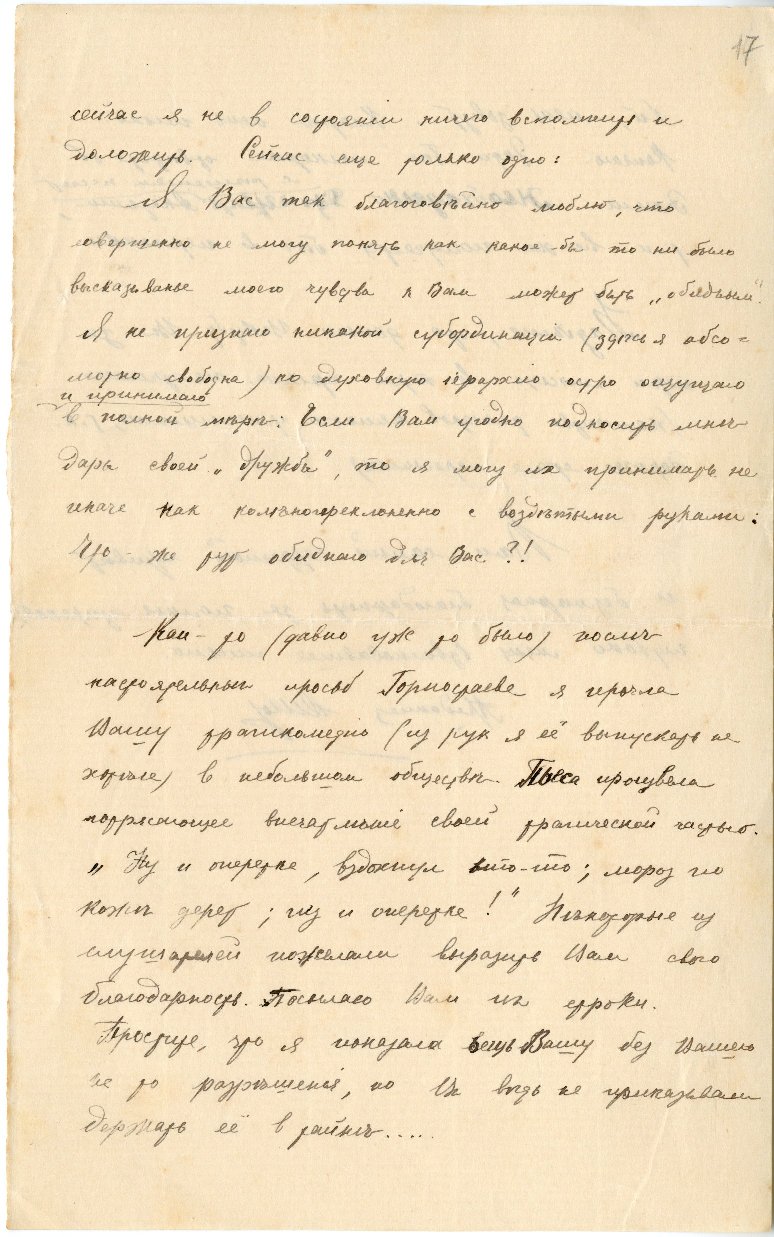 17
сейчас я не в состояніи ничего вспомнить и
доложить. Сейчас еще только одно:
Я Вас так благоговѣйно люблю, что
совершенно не могу понять как какое-бы то ни было
высказыванье моего чувства к Вам может быть „обидным".
Я не признаю никакой субординаціи (здѣсь я абсо=
лютно свободна) но духовную іерархію остро ощущаю
и принимаю
в полной мѣрѣ: Если Вам угодно подносить мнѣ
дары своей „дружбы", то я могу их принимать не
иначе как колѣнопреклоненно с воздѣтыми руками:
Что-же тут обиднаго для Вас?!
Как-то (давно уж то было) послѣ
настоятельных просьб Горностаева я прочла
Вашу трагикомедію (из рук я её выпускать не
хотѣла) в небольшом обществѣ. Пьеса произвела
потрясающее впечатлѣніе своей трагической частью.
„Ну и оперетка, вздохнул кто-то; мороз по
кожѣ дерет; ну и оперетка!" Нѣкоторые из
слушателей пожелали выразить Вам свою
благодарность. Посылаю Вам их строки.
Простите, что я показала вещь Вашу без Вашего
на то разрѣшенія, но Вы вѣдь не приказывали
держать её в тайнѣ.....